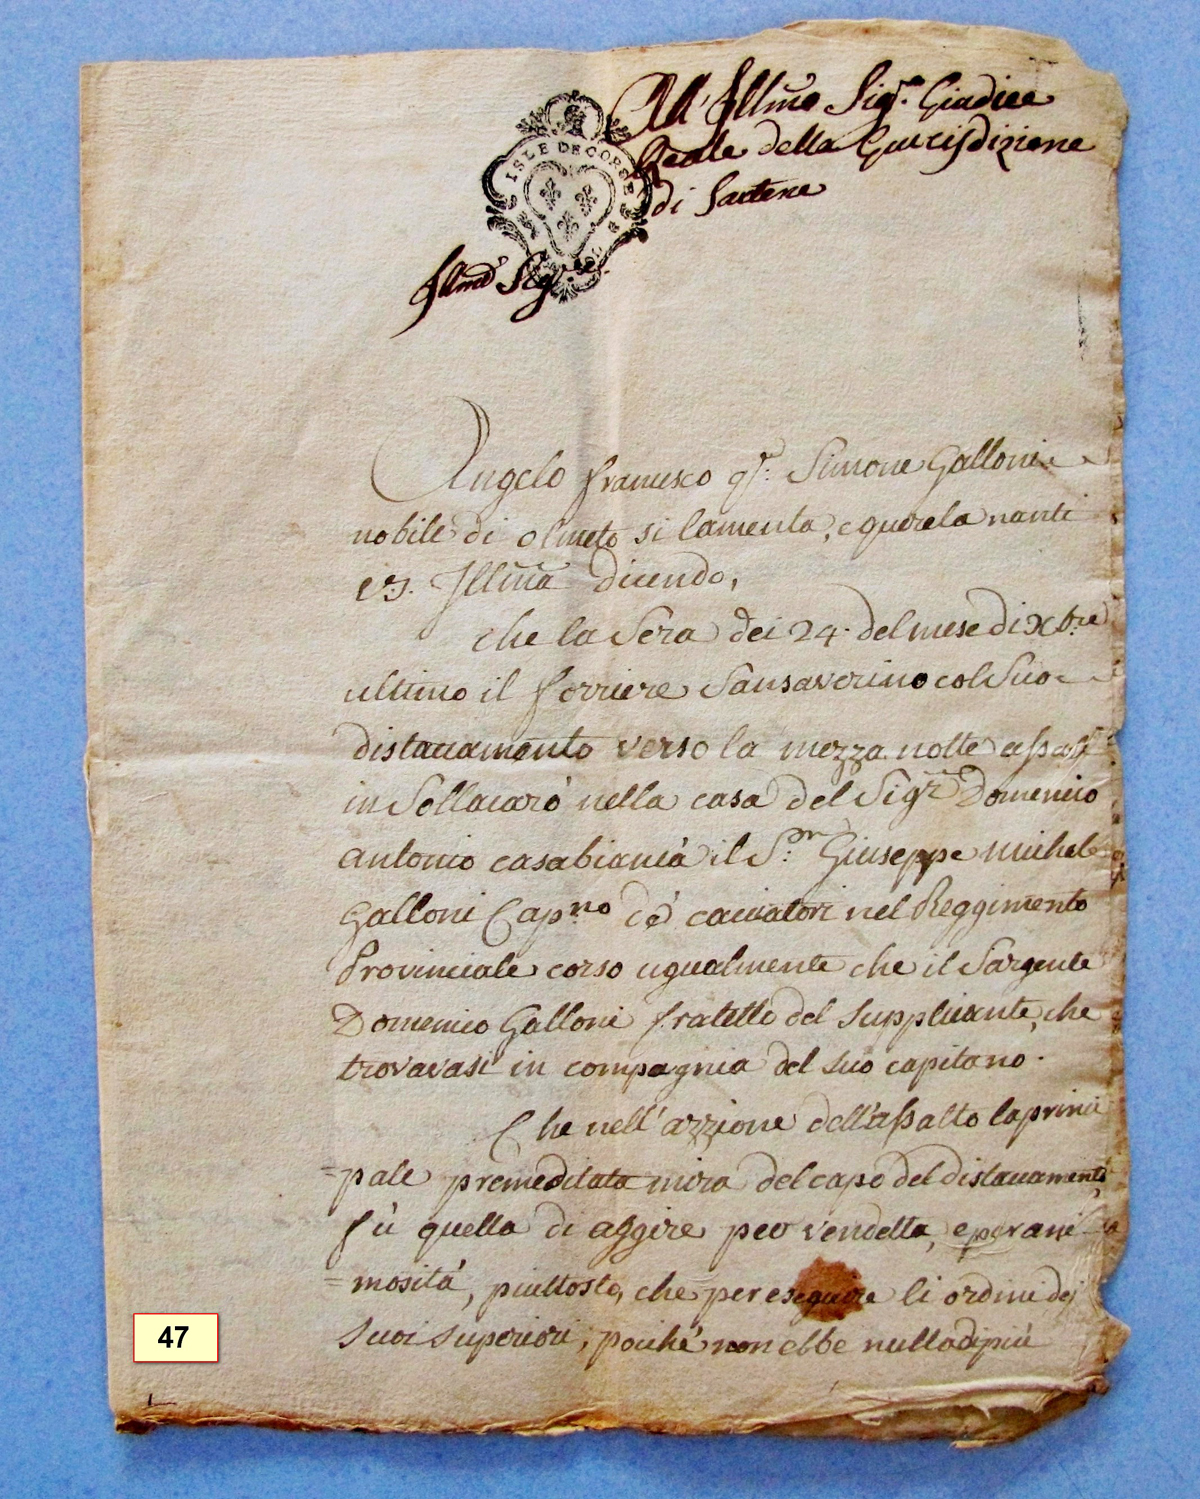 All' Illmo Sigr. Giudice
Reale della Giurisdizione
di Sartene
ISLE DE CORSE
Illmo Sigre.
Angelo Francesco qr. Simone Galloni
nobile di olmeto si lamenta, e querela nanti
V.S. Illma dicendo,
che la Sera dei 24. del mese di Xbre
ultimo il forriere Sansaverino col Suo
distaccamento verso la mezza notte assalì
in Sollacarò nella casa del Sigr Domenico
Antonio casabiancà il S. Giuseppe Michele
Galloni Capno dè cacciatori nel Reggimento
Provinciale corso ugualmente che il Sargente
Domenico Galloni fratello del supplicante, che
trovavasi in compagnia del suo capitano.
Che nell' azzione dell'assalto la princi
=pale premeditata mira del capo del distaccamento,
fù quella di aggire per vendetta, e per ani
=mosità, piuttosto, che per eseguire li ordini dei
suoi superiori, poiché non ebbe nulla di più
47